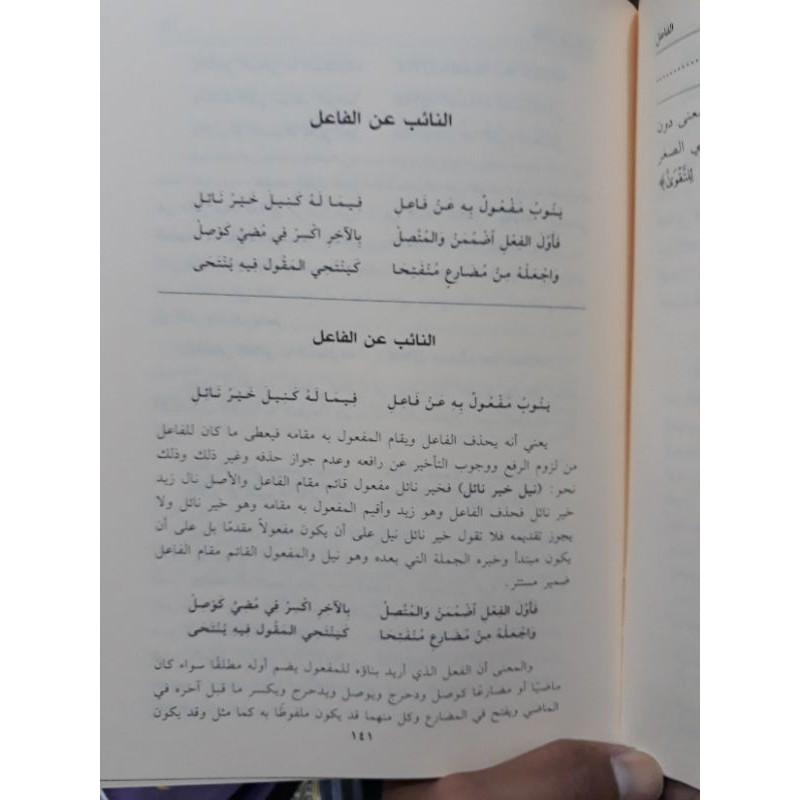 النائب عن الفاعل
يَنُوبُ مَفْعُولٌ بِه عَنْ فَاعِلِ فِيمَا لَهُ كَنِيلَ خَيْرُ نَائِلِ
فَأَوَّلَ الفِعْلِ اضْمُمَنْ وَالمُتَّصِلْ بِالآخِرِ اكْسِرْ فِي مُضِيٍّ كَوُصِلْ
وَاجْعَلْهُ مِنْ مُضَارِعٍ مُنْفَتِحَا كَيَنْتَحِي المَقُولِ فِيهِ يُنْتَحَى
النائب عن الفاعل
يَنُوبُ مَفْعُولٌ بِه عَنْ فَاعِلِ فِيمَا لَهُ كَنِيلَ خَيْرُ نَائِلِ
يعني أنه يحذف الفاعل ويقام المفعول به مقامه فيعطى ما كان للفاعل
من لزوم الرفع ووجوب التأخير عن رافعه وعدم جواز حذفه وغير ذلك وذلك
نحو: (نيل خير نائل) فخير نائل مفعول قائم مقام الفاعل والأصل نال زيد
خير نائل فحذف الفاعل وهو زيد وأقيم المفعول به مقامه وهو خير نائل ولا
يجوز تقديمه فلا تقول خير نائل نيل على أن يكون مفعولاً مقدمًا بل على أن
يكون مبتدأ وخبره الجملة التي بعده وهو نيل والمفعول القائم مقام الفاعل
ضمير مستتر.
فَأَوَّلَ الفِعْلِ اضْمُمَنْ وَالمُتَّصِلْ بِالآخِرِ اكْسِرْ فِي مُضِيٍّ كَوُصِلْ
وَاجْعَلْهُ مِنْ مُضَارِعٍ مُنْفَتِحَا كَيَنْتَحِي المَقُولِ فِيهِ يُنْتَحَى
والمعنى أن الفعل الذي أريد بناؤه للمفعول يضم أوله مطلقًا سواء كان
ماضيًا أو مضارعًا كوصل ودحرج ويوصل ويدحرج ويكسر ما قبل آخره في
الماضي ويفتح في المضارع وكل منهما قد يكون ملفوظًا به كما مثل وقد يكون
١٤١
الفاعل
دون
الصغر
لِلتَّقْوَىٰ﴾